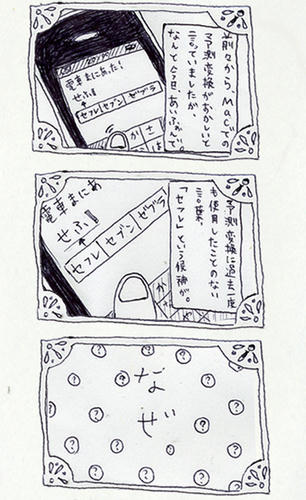 前々からMacでの
予測変換がおかしいと
言っていましたが、
なんと今日、あいふぉんで。
電車まにあった!
せふ
セフレ セブン ゼブラ
か さ
は
予測変換に過去一度
も使用したことのない
言葉、
「セフレ」という候補が。
電車まにあ
せふ
セフレ セブン ゼブラ
か
な ぜ
? ? ? ? ? ? ? ? ? ? ? ? ? ? ? ? ? ? ?